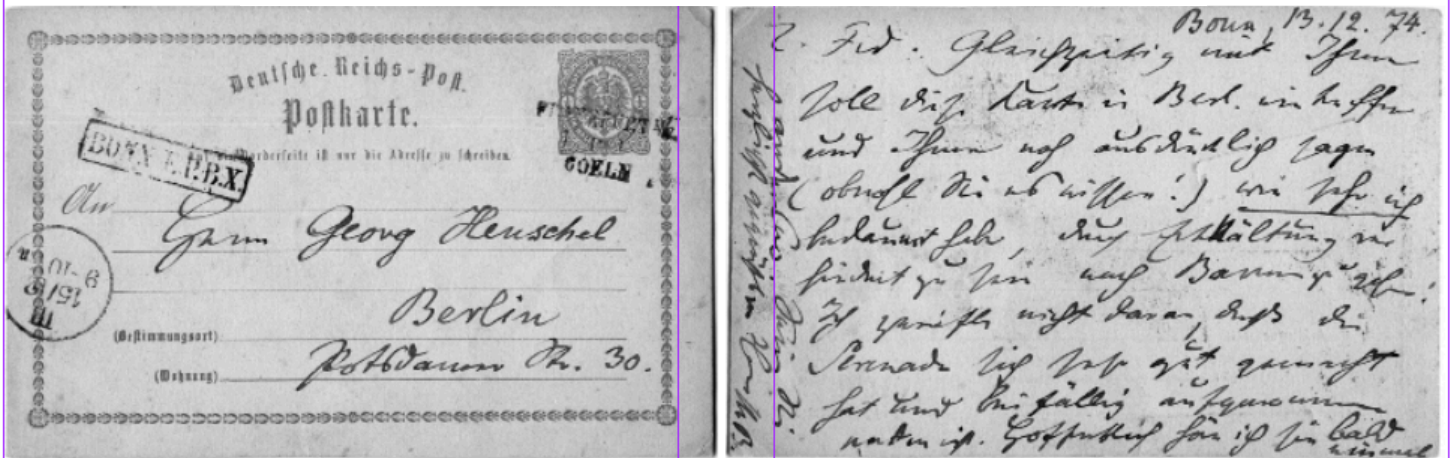 Deutsche Reichs-Post.
Postkarte.
Vorderseite ist nur die Adresse zu schreiben.
BONN
COELN
An
Herrn Georg Henschel
Berlin
(Bestimmungsort)
Potsdamer Str. 30.
(Wohnung)
9-10
15/12
Bonn, 13.12.74.
L. Frd. Gleichzeitig mit Ihnen
soll diese Karte in Berl. eintreffen
und Ihnen noch ausdrücklich sagen
(obwohl Sie es wissen!) wie sehr ich
bedauert habe, durch Erkältung ver
hindert zu sein nach Barmen zu gehen!
Ich zweifle nicht daran, daß die
Serenade sich sehr gut gemacht
hat und beifällig aufgenommen
worden ist. Hoffentlich höre ich Sie bald
einmal